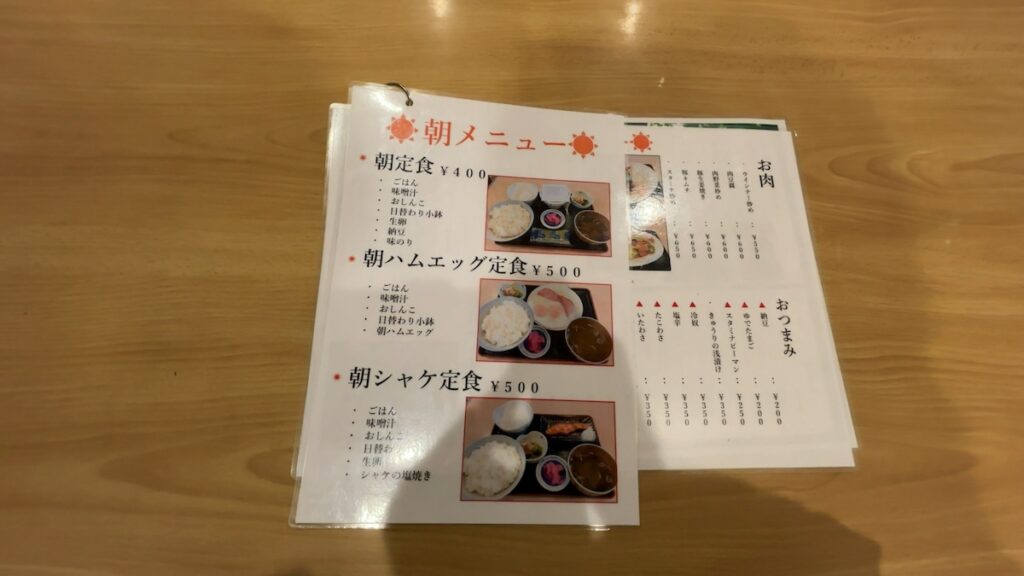 朝メニュー
朝定食 ¥400
・ごはん
・味噌汁
・おしんこ
・日替わり小鉢
・生卵
・納豆
・味のり
朝ハムエッグ定食 ¥500
・ごはん
・味噌汁
・おしんこ
・日替わり小鉢
・朝ハムエッグ
朝シャケ定食 ¥500
・ごはん
・味噌汁
・おしんこ
・日替わ
・生卵
・シャケの塩焼き
お肉
・ウインナー炒め：¥550
・肉豆腐：¥600
・肉野菜炒め：¥600
・豚生姜焼き：¥600
・豚キムチ：¥650
：¥650
おつまみ
▲納豆：¥200
▲ゆでたまご：¥200
▲スタミナピーマン：¥250
・きゅうりの浅漬け：¥350
▲冷奴：¥350
▲塩辛：¥350
▲たこわさ：¥350
▲いたわさ：¥350